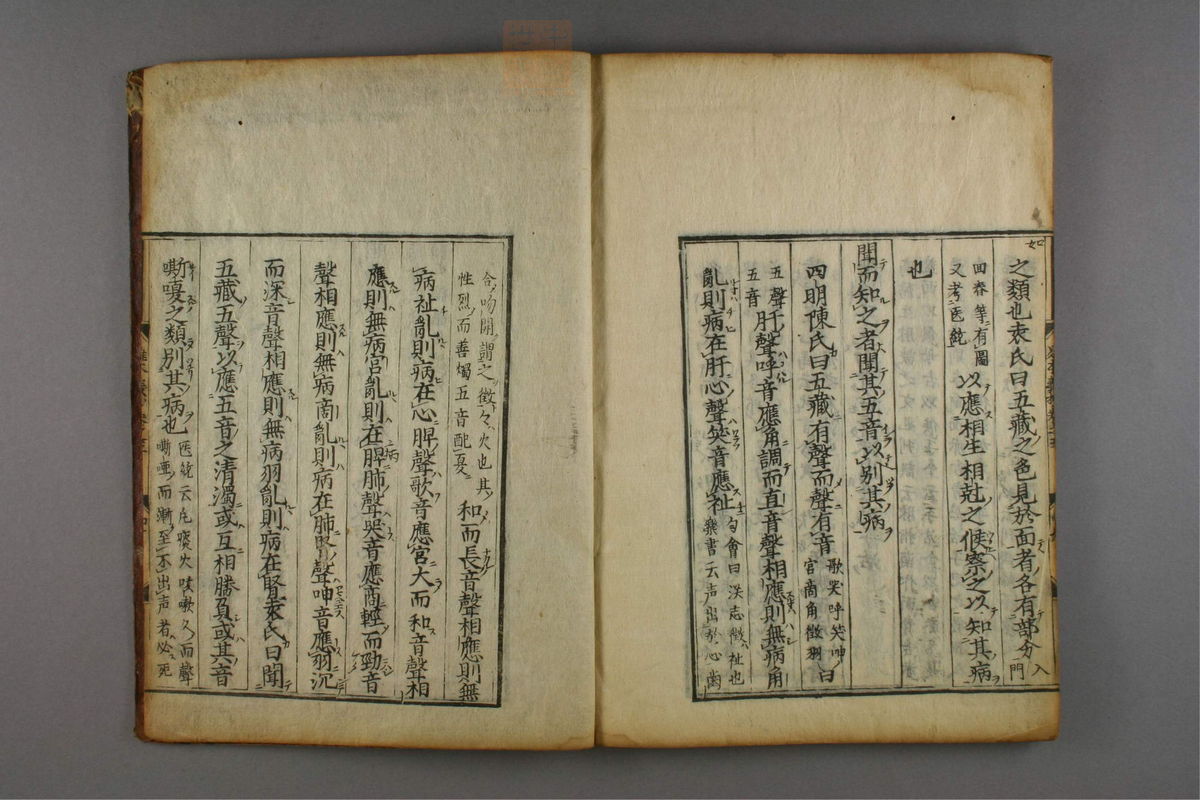 之類也袁氏曰五藏之色見於面者各有部分入門
如回春等有圖又考医統以應相生相尅之候察之以知其病
也
聞而知之者聞其五音以別其病
四明陳氏曰五藏有聲而聲有音歌哭呼笑呻曰五聲宮商角徵羽曰五音
肝聲呼音應角調而直音聲相應則無病角
亂則病在肝心聲笑音應祉句會曰徵祉也樂書云声出於心歯
合吻開謂之徵々火也其性烈而善燭五音配夏和而長音聲相應則無
病祉亂則病在心脾聲歌音應宮大而和音聲相
應則無病宮亂則病在脾肺聲哭音應商輕而勁音
聲相應則無病商亂則病在肺腎聲呻音應羽沉
而深音聲相應則無病羽亂則病在腎袁氏曰聞
五藏五聲以應五音之清濁或互相勝負或其音
嘶嗄之類別其病也医統云凡痰火咳嗽久而聲嘶啞而漸至不出声者必死